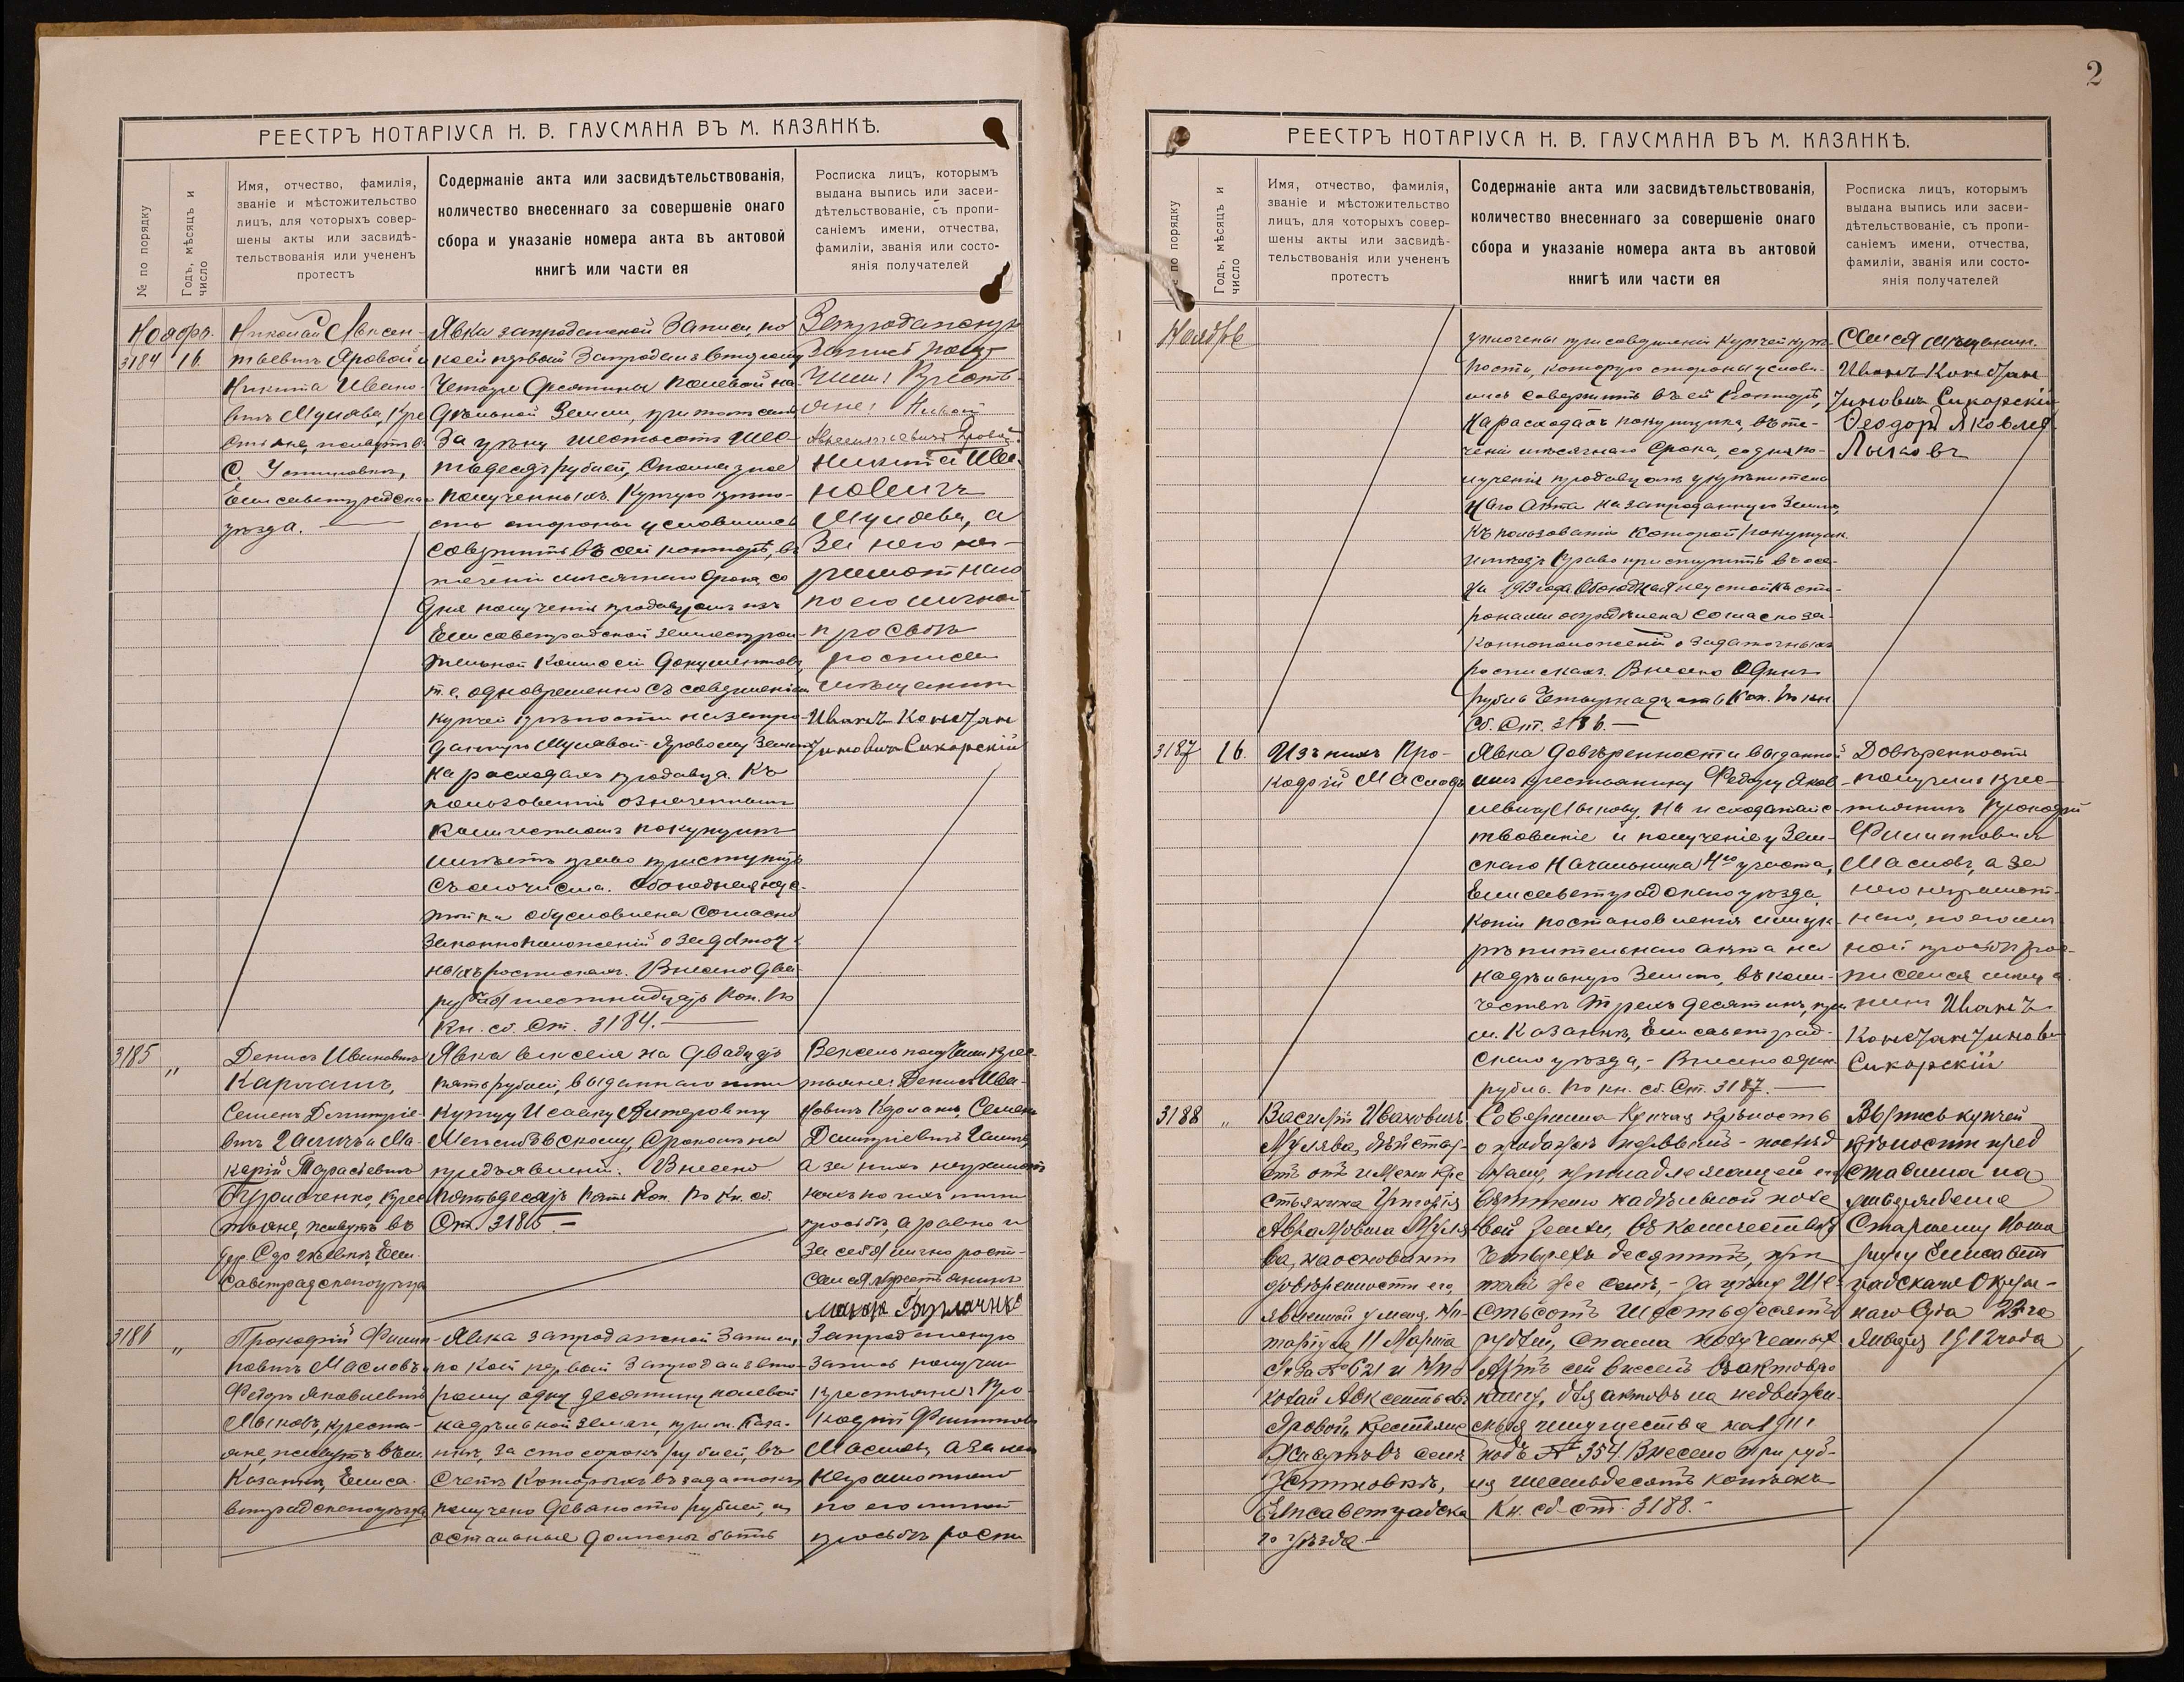 РЕЕСТРЪ НОТАРІУСА Н. В. ГАУСМАНА ВЪ М. КАЗАНКѢ.
№ по порядку
Годъ, мѣсяцъ и
число
Имя, отчество, фамилія,
званіе и мѣстожительство
лицъ, для которыхъ совер-
шены акты или засвидѣ-
тельствованія или учененъ
протестъ
Содержаніе акта или засвидѣтельствованія,
количество внесеннаго за совершеніе онаго
сбора и указаніе номера акта въ актовой
книгѣ или части ея
Росписка лицъ, которымъ
выдана выпись или засви-
дѣтельствованіе, съ пропи-
саніемъ имени, отчества,
фамиліи, званія или состо-
янія получателей
Ноябрь
3184 16.
Николай Авксен-
тьевичъ Яровой и
Никита Ивано-
вичъ Мулява, Кре
стьяне, живутъ въ
с. Устиновкѣ,
Елисаветградска
уѣзда.
Явка запродажной Записи, по
коей первый Запродалъ второму
Четыре Десятины полевой на-
дѣльной Земли, при томъ селѣ
За цѣну шестьсотъ шес-
тьдесятъ рублей, Сполна уже
полученныхъ. Купчую крѣпо-
сть стороны условились
совершить въ сей конторѣ, въ
теченіи мѣсячнаго срока, со
дня полученія продавцомъ изъ
Елисаветградской землеустрои-
тельной Комиссіи документовъ
т.е. одновременно съ совершеніемъ
купчей крѣпости на запро-
данную Мулявой Яровому Землю
на расходахъ продавца. Къ
пользованію означеннымъ
количествомъ покупщикъ
имѣетъ право приступить
съ сего числа. Обоюдная неус-
тойка обусловлена Согласно
Законоположеній о задаточ-
ныхъ роспискахъ. Внесено два
рубля шестнадцать коп. По
Кн. сб. Ст. 3184.
Запродажную
Запись полу-
чили: Кресть-
яне: Николай
Авксентьевичъ Яровой
Никита Ива-
новичъ
Мулява, а
За него не-
грамотнаго
по его личной
просьбѣ
росписался
мѣщанинъ
Иванъ Констан
тиновичъ Сикорскій
3185 „
Денисъ Ивановичъ
Карпашъ,
Семенъ Дмитріе-
вичъ Галичъ и Ма-
карій Тарасіевичъ
Бурлаченко, Крес
тьяне, живутъ въ
Ели-
саветградскаго уѣзда
Явка векселя на двадцать
пять рублей, выданнаго ими
купцу Исааку
срокомъ на
предъявленіи. Внесено
пятьдесятъ пять Коп. По Кн. сб.
Ст. 3185
Вексель получили крес-
тьяне: Денисъ Ива-
новичъ Карпашъ, Семенъ
Дмитріевичъ Галичъ
а за нихъ неграмот-
ныхъ по ихъ личн
просьбѣ, а равно и
За себя лично роспи-
сался крестьянинъ
Макар Бурлачнко
3186 „
Прокофій Филип-
повичъ Масловъ и
Федоръ Яковлевичъ
Лысковъ, кресть-
яне, живутъ въ м.
Казанкѣ, Елиса-
ветградскаго уѣзда
Явка запродажной Записи,
по коей первый Запродалъ вто-
рому одну десятину полевой
надѣльной земли, при м. Каза-
нкѣ, за сто сорокъ рублей, въ
счетъ которыхъ въ задатокъ
получено девяносто рублей, а
остальные должны быть
Запродажную
Запись получили
крестьяне: Про-
кофій Филиппов
Масловъ, а за него
неграмотнаго
по его личной
просьбѣ роспи
2
РЕЕСТРЪ НОТАРІУСА Н. В. ГАУСМАНА ВЪ М. КАЗАНКѢ.
по порядку
Годъ, мѣсяцъ и
число
Имя, отчество, фамилія,
званіе и мѣстожительство
лицъ, для которыхъ совер-
шены акты или засвидѣ-
тельствованія или учененъ
протестъ
Содержаніе акта или засвидѣтельствованія,
количество внесеннаго за совершеніе онаго
сбора и указаніе номера акта въ актовой
книгѣ или части ея
Росписка лицъ, которымъ
выдана выпись или засви-
дѣтельствованіе, съ пропи-
саніемъ имени, отчества,
фамиліи, званія или состо-
янія получателей
Ноябрь
уплочены при совершеніи купчей крѣ-
пости, которую стороны услови-
лись совершить въ сей конторѣ,
на расходахъ покупщика, въ те-
ченіи мѣсячнаго срока, со дня по-
лученія продавцомъ укрѣпитель
наго акта на запроданную землю,
къ пользованію которой покупщик
имѣетъ право приступить въ осе-
ни 1912 года. Обоюдная неустойка сто-
ронами опредѣлена согласно за-
конноположеній о задаточныхъ
роспискахъ. Внесено одинъ
рубль четырнадцать Коп. По кн
сб. Ст. 3186.
сался мѣщанин.
Иванъ Констан
тиновичъ Сикорскій
Ѳеодоръ Яковлев.
Лысковъ
3187 16.
Изъ нихъ Про-
кофій Масловъ
Явка довѣренности выданной
имъ крестьянину Федору Яков-
левичу Лыскову, на исходатайс-
твованіе и полученіе у Зем-
скаго Начальника 4го участка,
Елисаветградскаго уѣзда
копіи постановленія или ук-
рѣпительнаго акта на
надѣльную землю, въ коли-
чествѣ трехъ десятинъ, при
м. Казанкѣ, Елисаветград-
скаго уѣзда,- Внесено один
рубль. По кн. сб. Ст. 3187.
Довѣренность
получилъ крес-
тьянинъ Прокофій
Филипповичъ
Масловъ, а за
него неграмот-
наго, по его лич
ной просьбѣ рос-
писался мѣща-
нин Иванъ
Константинови
Сикорскій
3188 „
Василій Ивановичъ
Мулява, дѣйству-
етъ отъ имени Кре
стьянина Григорія
Авраамовича Муля-
ва, на основаніи
довѣренности его,
явленной у меня, Но-
таріуса 11 Марта
с.г. за № 621 и Ни-
колай Авксентьев.
Яровой, крестьяне
живутъ въ селѣ
Устиновкѣ,
Елисаветградска
го уѣзда
Совершена Купчая крѣпость
о продажѣ первымъ - послѣд
нему, принадлежащей его
надѣльной поле
вой земли, въ количествѣ
четырехъ десятинъ, при
томъ же селѣ, - за цѣну Ше-
стьсотъ шестьдесятъ
рублей, сполна полученныхъ
Актъ сей внесенъ въ актовую
книгу, для актовъ на недвижи-
мыя имущества на 1911
подъ № 354 Внесено три руб-
ля шестьдесятъ копѣекъ
Кн. сб. ст. 3188.
Выпись купчей
крѣпости пред
ставлена на
утвержденіе
Старшему Нота
ріусу Елисавет
градскаго Окруж-
наго Суда 23го
Января 1912 года